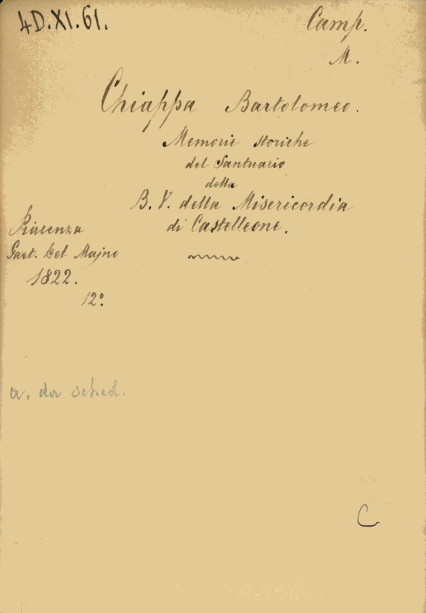 4D.XI.61.
Camp.
M.
Chiappa Bartolomeo.
Memorie storiche
del Santuario
della
B. V. della Misericordia
di Castelleone.
Piacenza
Gaet. Del Majno
1822.
12°
a. da sched.
C